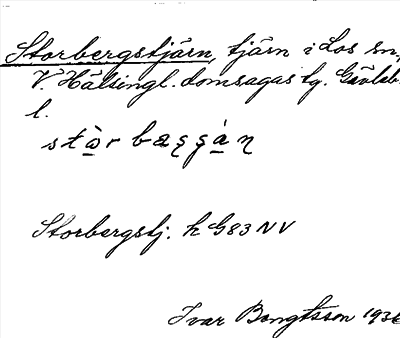 Storbergstjärn, tjärn i Los sn,
V. Hälsingl. domsagas tg. Gävleb.
l.
Storbergstj. k G83 NV
Ivar Bengtsson 193